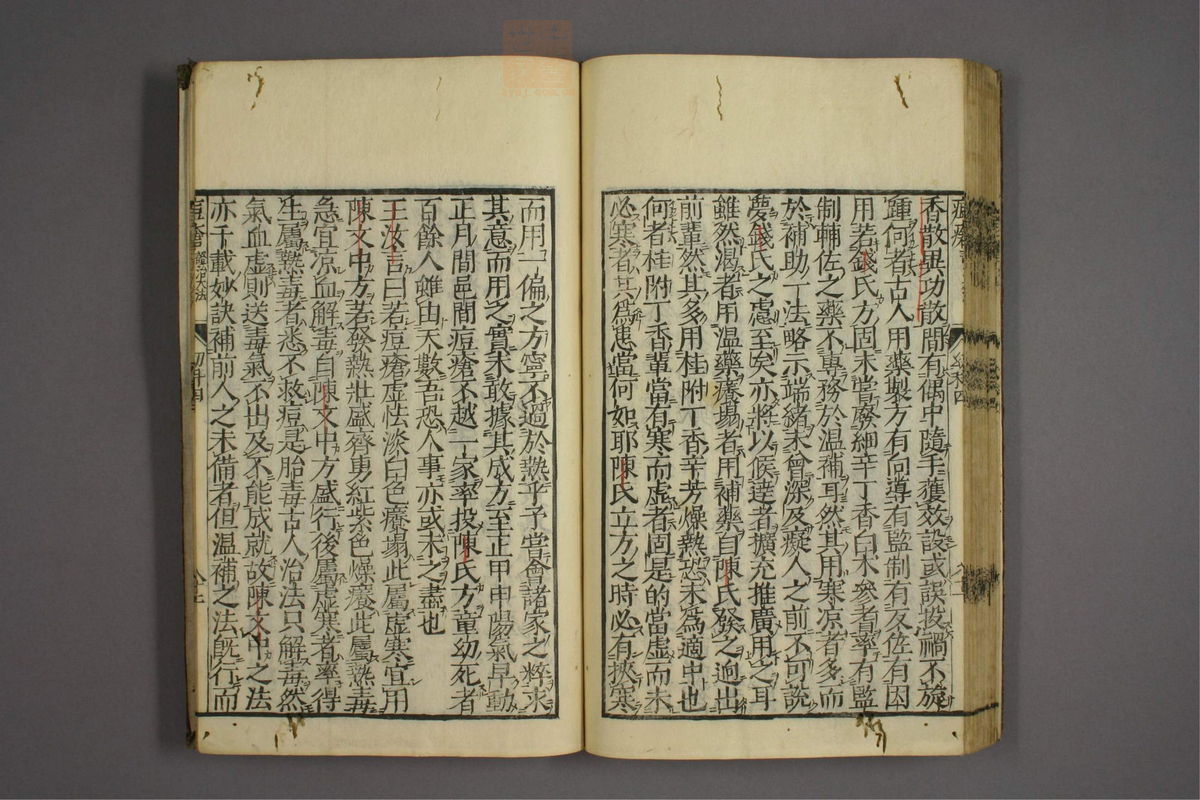 香散異功散間有偶中隨手獲效設或誤投禍不旋
踵何者古人用藥製方有向導有監制有反佐有因
用若錢氏方固未嘗廢細辛丁香白朮參芪率有監
制輔佐之藥不專務於温補耳然其用寒凉者多而
於補助一法略示端緒未曾深及癡人之前不可說
夢錢氏之慮至矣亦將以候達者擴充推廣用之耳
雖然渴者用温藥癢塌者用補藥自陳氏發之迥出
前輩然其多用桂附丁香辛芳燥熱恐未為適中也
何者桂附丁香輩當有寒而虛者固是的當虛而未
必寒者其為患當何如耶陳氏立方之時必有挾寒
而用一偏之方寧不過於熱乎予嘗會諸家之粹求
其意而用之實未敢據其成方至正甲申陽氣早動
正月間邑間痘瘡不越一家率投陳氏方童幼死者
百餘人雖由天數吾恐人事亦或未之盡也
王汝言曰若痘瘡虛怯淡白色癢塌此屬虛寒宜用
陳文中方若發熱壯盛齊勇紅紫色燥癢此屬熱毒
急宜凉血解毒自陳文中方盛行後屬虛寒者率得
生屬熱毒者悉不救痘是胎毒古人治法只解毒然
氣血虛則送毒氣不出及不能成就故陳文中之法
亦千載妙訣補前人之未備者但温補之法既行而
痘瘡 證治大法